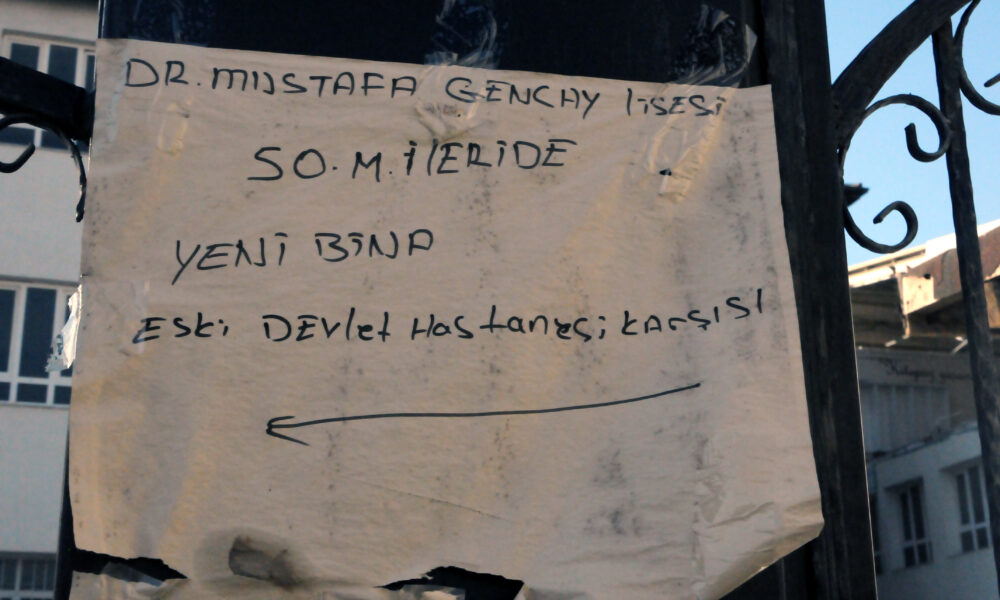 DR. MUSTAFA GENCAY LİSESİ
50. M. İLERİDE
YENİ BİNA
ESki DEVlet HAStanesi kARŞISI